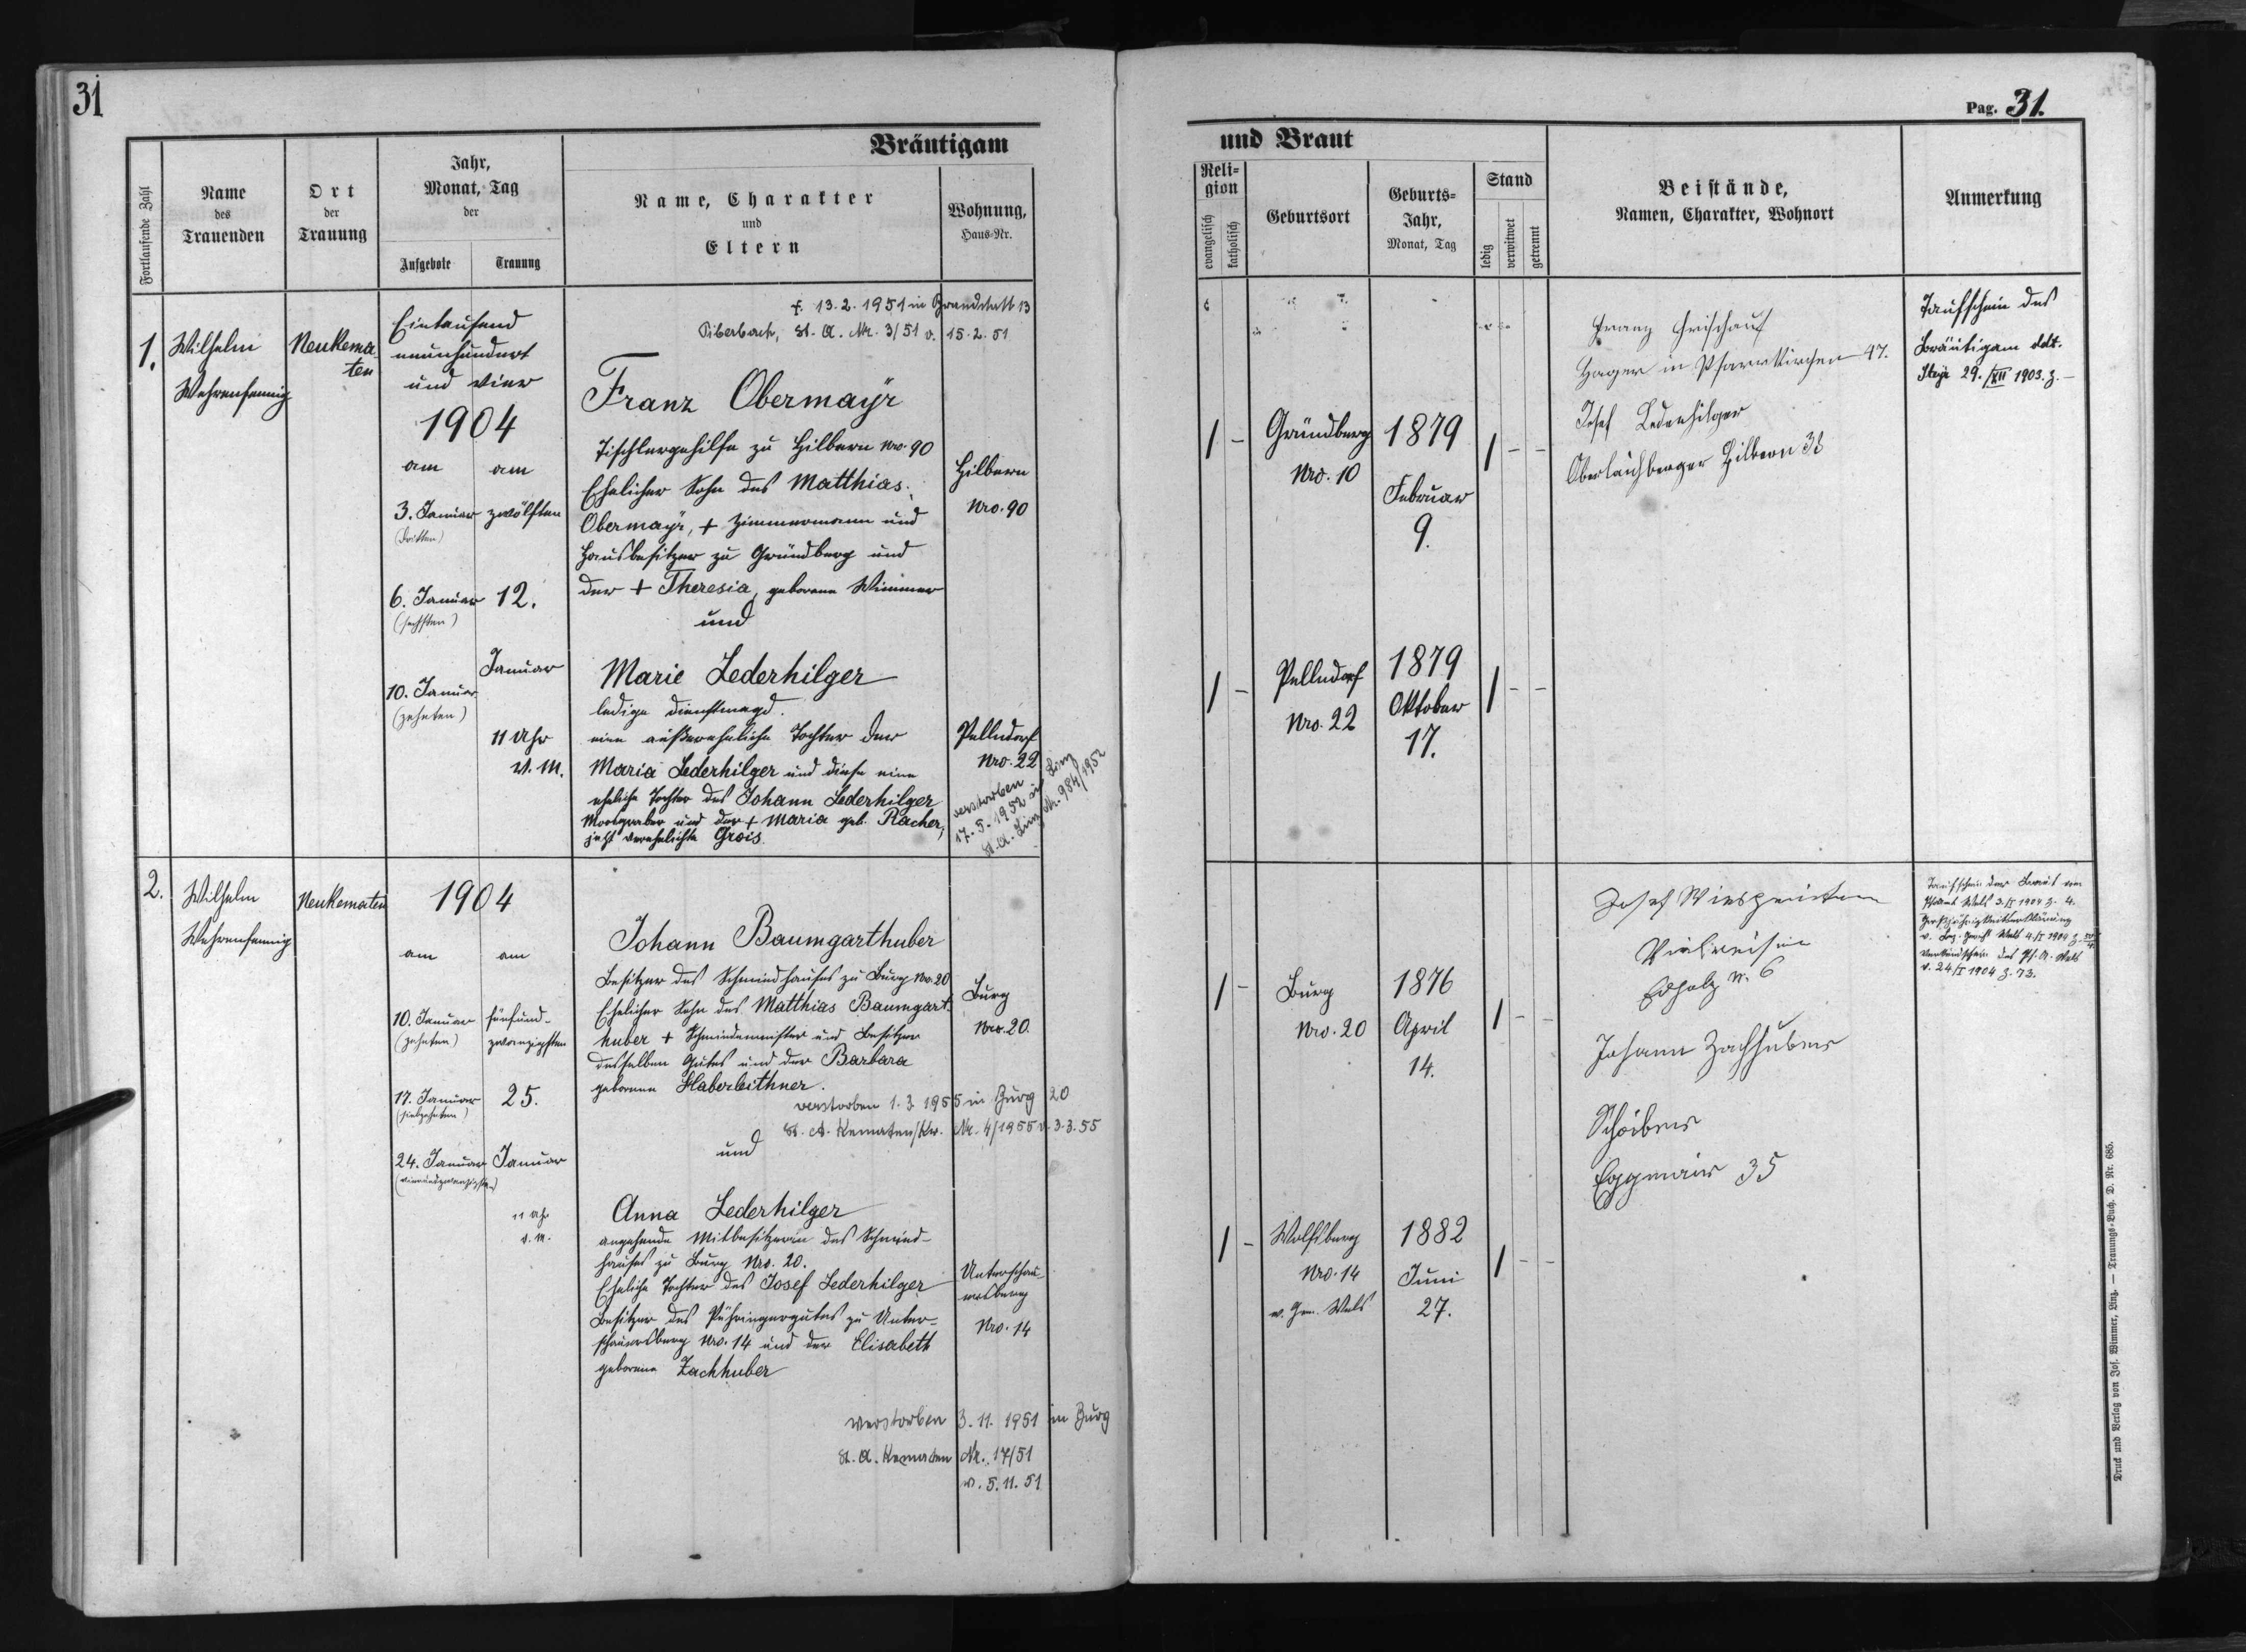 31
Bräutigam
Fortlaufende Zahl
Name
des
Trauenden
Ort
der
Trauung
Jahr,
Monat, Tag
der
Aufgebote
Trauung
Name, Charakter
und
Eltern
Wohnung,
Haus-Nr.
1.
Wilhelm
Wehrenfennig
Neukema
ten
Eintausend
neunhundert
und vier
1904
am
3. Januar
(dritten)
6. Januar
(sechsten)
10. Januar
(zehnten)
am
zwölften
12.
Januar
11 Uhr
V. M.
†. 13.2.1951 in Brandstatt 13
Piberbach, St. A. Nr. 3/51 v. 15.2.51
Franz Obermayr
Tischlergehilfe zu Hilbern Nro. 90
Ehelicher Sohn des Matthias
Obermayr, + Zimmermann und
Hausbesitzer zu Gründberg und
der + Theresia, geborene Wimmer
und
Hilbern
Nro. 90
Marie Lederhilger
ledige Dienstmagd.
eine außereheliche Tochter der
Maria Lederhilger und diese eine
eheliche Tochter des Johann Lederhilger
Moosgraber und der + Maria geb. Racher,
jetzt verehelichte Grois
Pellndorf
Nro. 22
verstorben
17.5.1952 in Linz
St. A. Linz Nr. 984/1952
2.
Wilhelm
Wehrenfennig
Neukematen
1904
am
10. Januar
(zehnten)
17. Januar
(siebzehnten)
24. Januar
(vierundzwanzigsten)
am
fünfund-
zwanzigsten
25.
Januar
11 Uhr
V. M.
Johann Baumgarthuber
Besitzer des Schmiedhauses zu Burg Nro. 20
Ehelicher Sohn des Matthias Baumgart-
huber + Schmiedemeister und Besitzer
desselben Gutes und der Barbara
geborenen Haberleithner.
verstorben 1.3.1955 in Burg 20
St. A. Kematen/Kr. Nr. 4/1955 v. 3.3.55
und
Burg
Nro. 20
Anna Lederhilger
angehende Mitbesitzerin des Schmied-
hauses zu Burg Nro. 20.
Eheliche Tochter des Josef Lederhilger
Besitzer des Pühringergutes zu Unter-
schauersberg Nro. 14 und der Elisabeth
geborene Zachhuber
Unterschau-
ersberg
Nro. 14
verstorben 3.11.1951 in Burg
St. A. Kematen Nr. 17/51
v. 5.11.51
Pag. 31.
und Braut
Reli-
gion
evangelisch
katholisch
Geburtsort
Geburts-
Jahr,
Monat, Tag
Stand
ledig
verwitwet
getrennt
Beistände,
Namen, Charakter, Wohnort
Anmerkung
1 -
Gründberg
Nro. 10
1879
Februar
9.
1 - -
Franz
in Pfarrkirchen 47.
Josef Lederhilger
Hilbern
Taufschein des
Bräutigam ddt.
29./XII 1903. Z. –
1 -
Pellndorf
Nro. 22
1879
Oktober
17.
1 - -
1 -
Burg
Nro. 20
1876
April
14.
1 - -
Josef
6
Johann Zachhuber
Eggmair 35
Taufschein der Braut vom
Pfarramt Wels 3./I 1904 Z. 4.
Großjährigkeitserklärung
v. 24./I 1904 Z. 73.
1 -
Wolfsberg
Nro. 14
Wels
1882
Juni
27.
1 - -
Druck und Verlag von Jos. Wimmer, Linz. — Trauungs-Buch. D. Nr. 685.